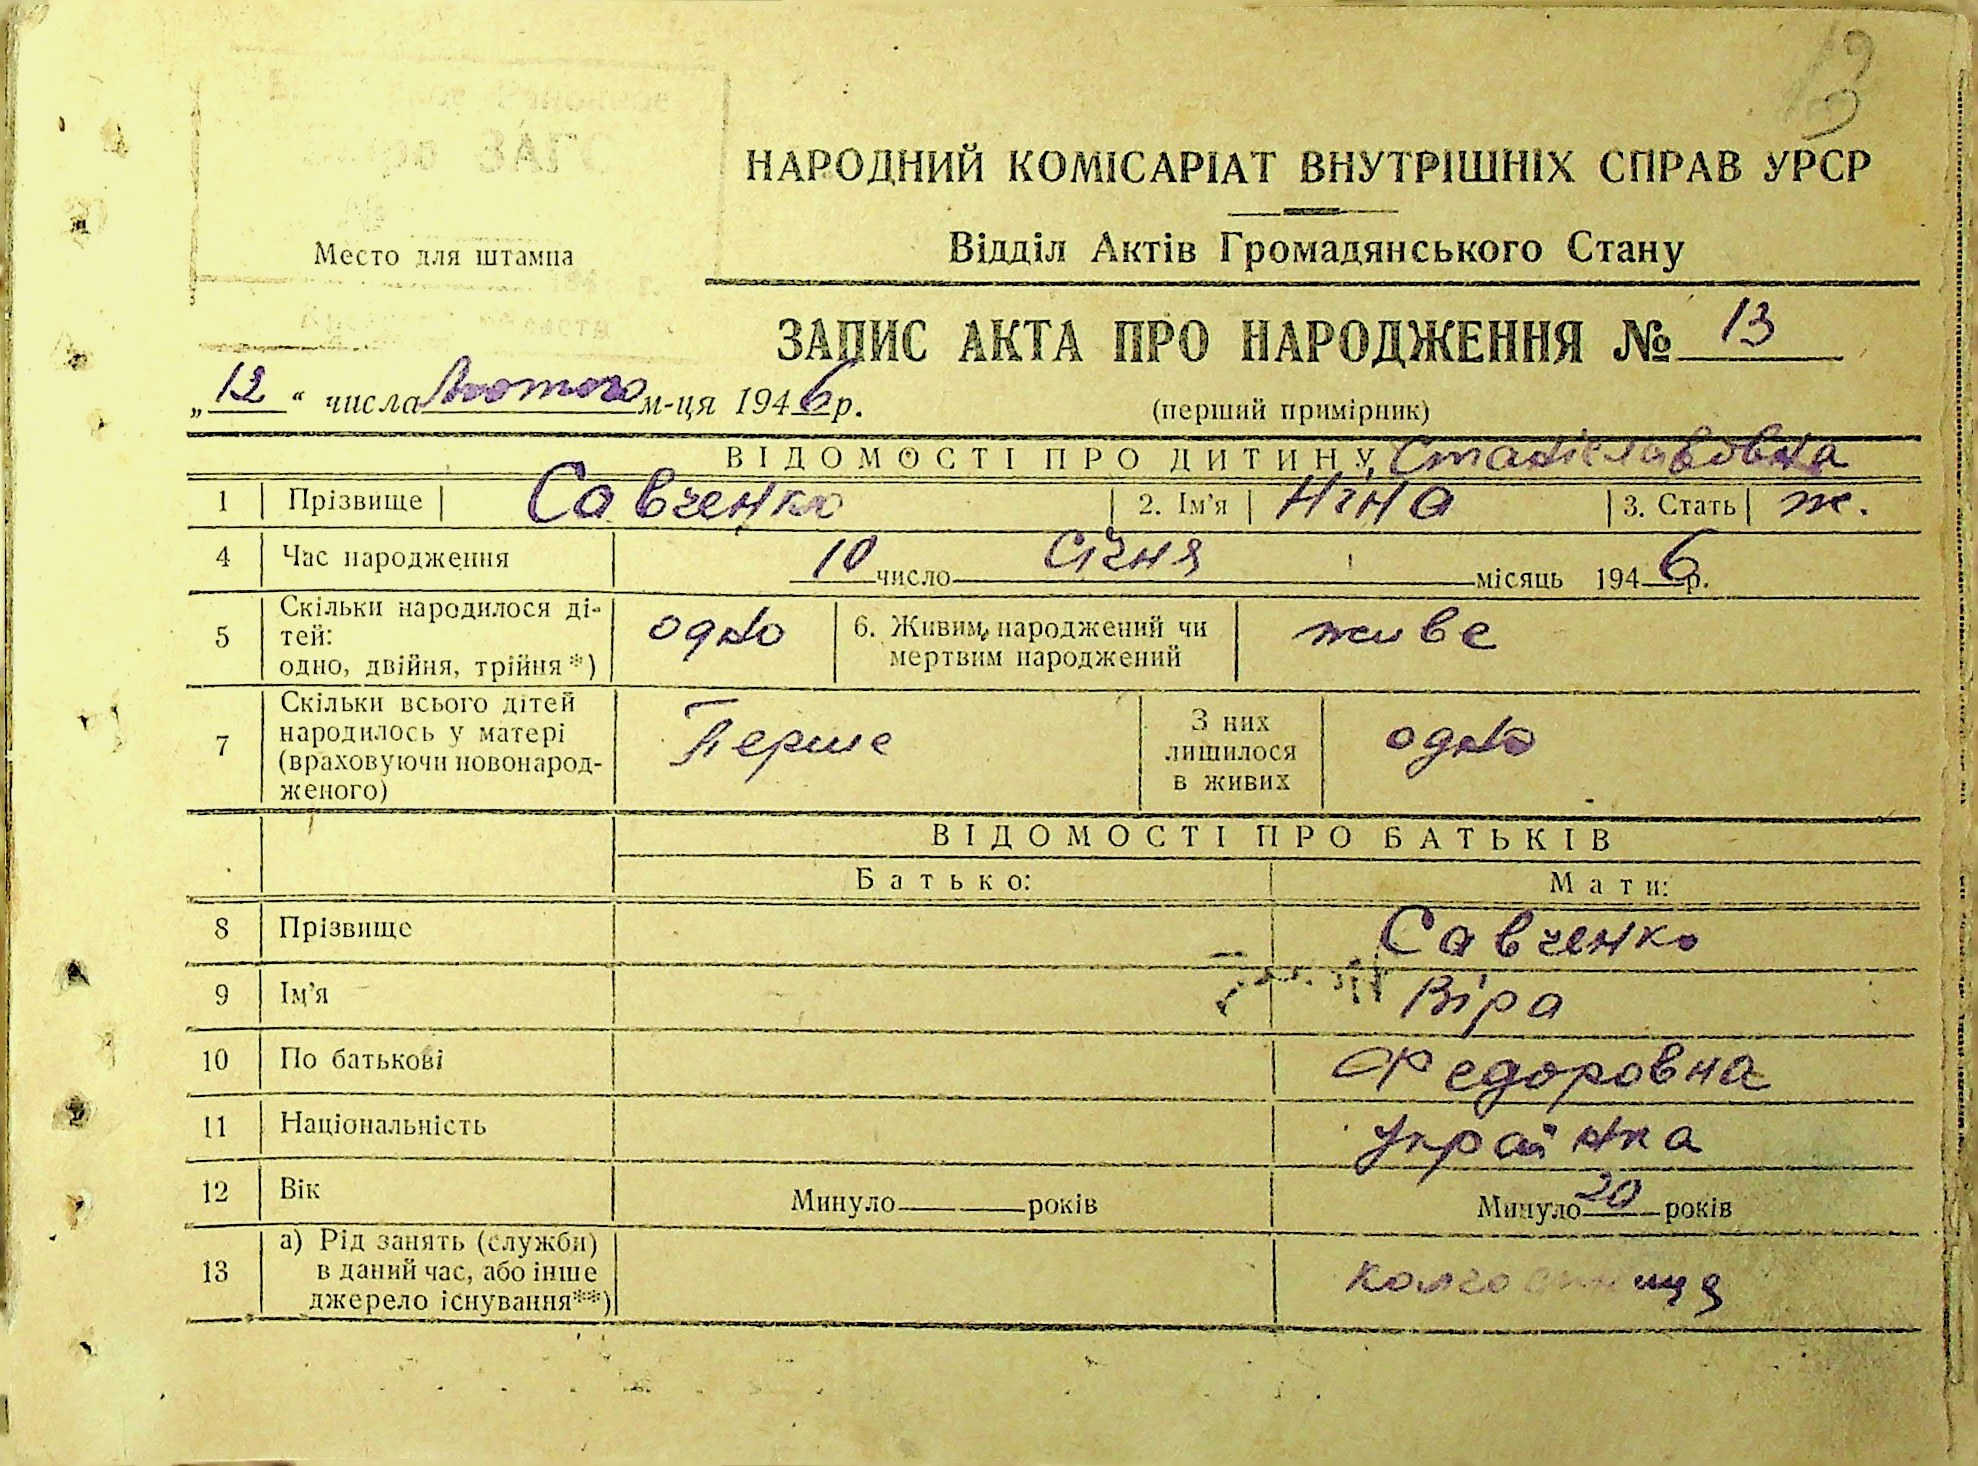 13
ЗАГС
Место для штампа
НАРОДНИЙ КОМІСАРІАТ ВНУТРІШНІХ СПРАВ УРСР
Відділ Актів Громадянського Стану
ЗАПИС АКТА ПРО НАРОДЖЕННЯ № 13
„12“ числа лютого м-ця 1946 р.
(перший примірник)
ВІДОМОСТІ ПРО ДИТИНУ Станіславовна
1 Прізвище Савченко 2. Ім'я Ніна 3. Стать ж.
4 Час народження 10 число Січня місяць 1946 р.
5 Скільки народилося ді-
тей:
одно, двійня, трійня*) одно 6. Живим народжений чи
мертвим народжений живе
7 Скільки всього дітей
народилось у матері
(враховуючи новонарод-
женого) Перше З них
лишилося
в живих одно
ВІДОМОСТІ ПРО БАТЬКІВ
Батько: Мати:
8 Прізвище Савченко
9 Ім'я Віра
10 По батькові Федоровна
11 Національність українка
12 Вік Минуло — років Минуло 20 років
13 а) Рід занять (служби)
в даний час, або інше
джерело існування**)